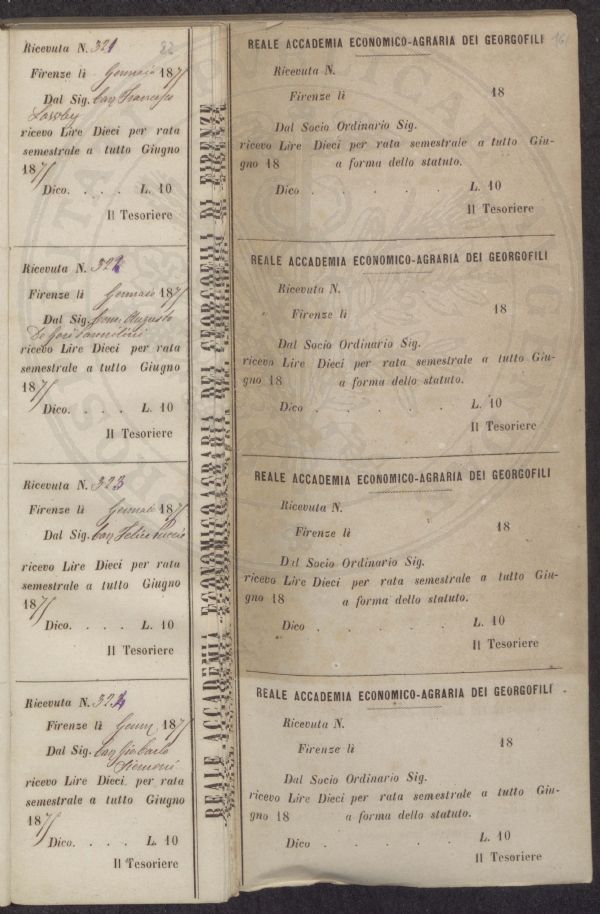 Ricevuta N. 321 22
Firenze li Gennaio 1877
Dal Sig. Cav. Francesco
ricevo Lire Dieci per rata
semestrale a tutto Giugno
1877
Dico. . . . L. 10
Il Tesoriere
Ricevuta N. 322
Firenze lì Gennaio 1877
Dal Sig. Com. Augusto
ricevo Lire Dieci per rata
semestrale a tutto Giugno
1877
Dico. . . . L. 10
Il Tesoriere
Ricevuta N. 323
Firenze lì Gennaio 1877
Dal Sig. Cav. Felice
ricevo Lire Dieci per rata
semestrale a tutto Giugno
1877
Dico. . . . L. 10
Il Tesoriere
Ricevuta N. 324
Firenze lì Genn. 1877
Dal Sig. Cav. Gio Carlo
Siemoni
ricevo Lire Dieci per rata
semestrale a tutto Giugno
1877
Dico. . . . L. 10
Il Tesoriere
REALE ACCADEMIA ECONOMICO-AGRARIA DEI GEORGOFILI DI FIRENZE
REALE ACCADEMIA ECONOMICO-AGRARIA DEI GEORGOFILI 16
Ricevuta N.
Firenze lì 18
Dal Socio Ordinario Sig.
ricevo Lire Dieci per rata semestrale a tutto Giu-
gno 18 a forma dello statuto.
Dico . . . . . L. 10
Il Tesoriere
REALE ACCADEMIA ECONOMICO-AGRARIA DEI GEORGOFILI
Ricevuta N.
Firenze lì 18
Dal Socio Ordinario Sig.
ricevo Lire Dieci per rata semestrale a tutto Giu-
gno 18 a forma dello statuto.
Dico . . . . . L. 10
Il Tesoriere
REALE ACCADEMIA ECONOMICO-AGRARIA DEI GEORGOFILI
Ricevuta N.
Firenze lì 18
Dal Socio Ordinario Sig.
ricevo Lire Dieci per rata semestrale a tutto Giu-
gno 18 a forma dello statuto.
Dico . . . . . L. 10
Il Tesoriere
REALE ACCADEMIA ECONOMICO-AGRARIA DEI GEORGOFILI
Ricevuta N.
Firenze lì 18
Dal Socio Ordinario Sig.
ricevo Lire Dieci per rata semestrale a tutto Giu-
gno 18 a forma dello statuto.
Dico . . . . . L. 10
Il Tesoriere